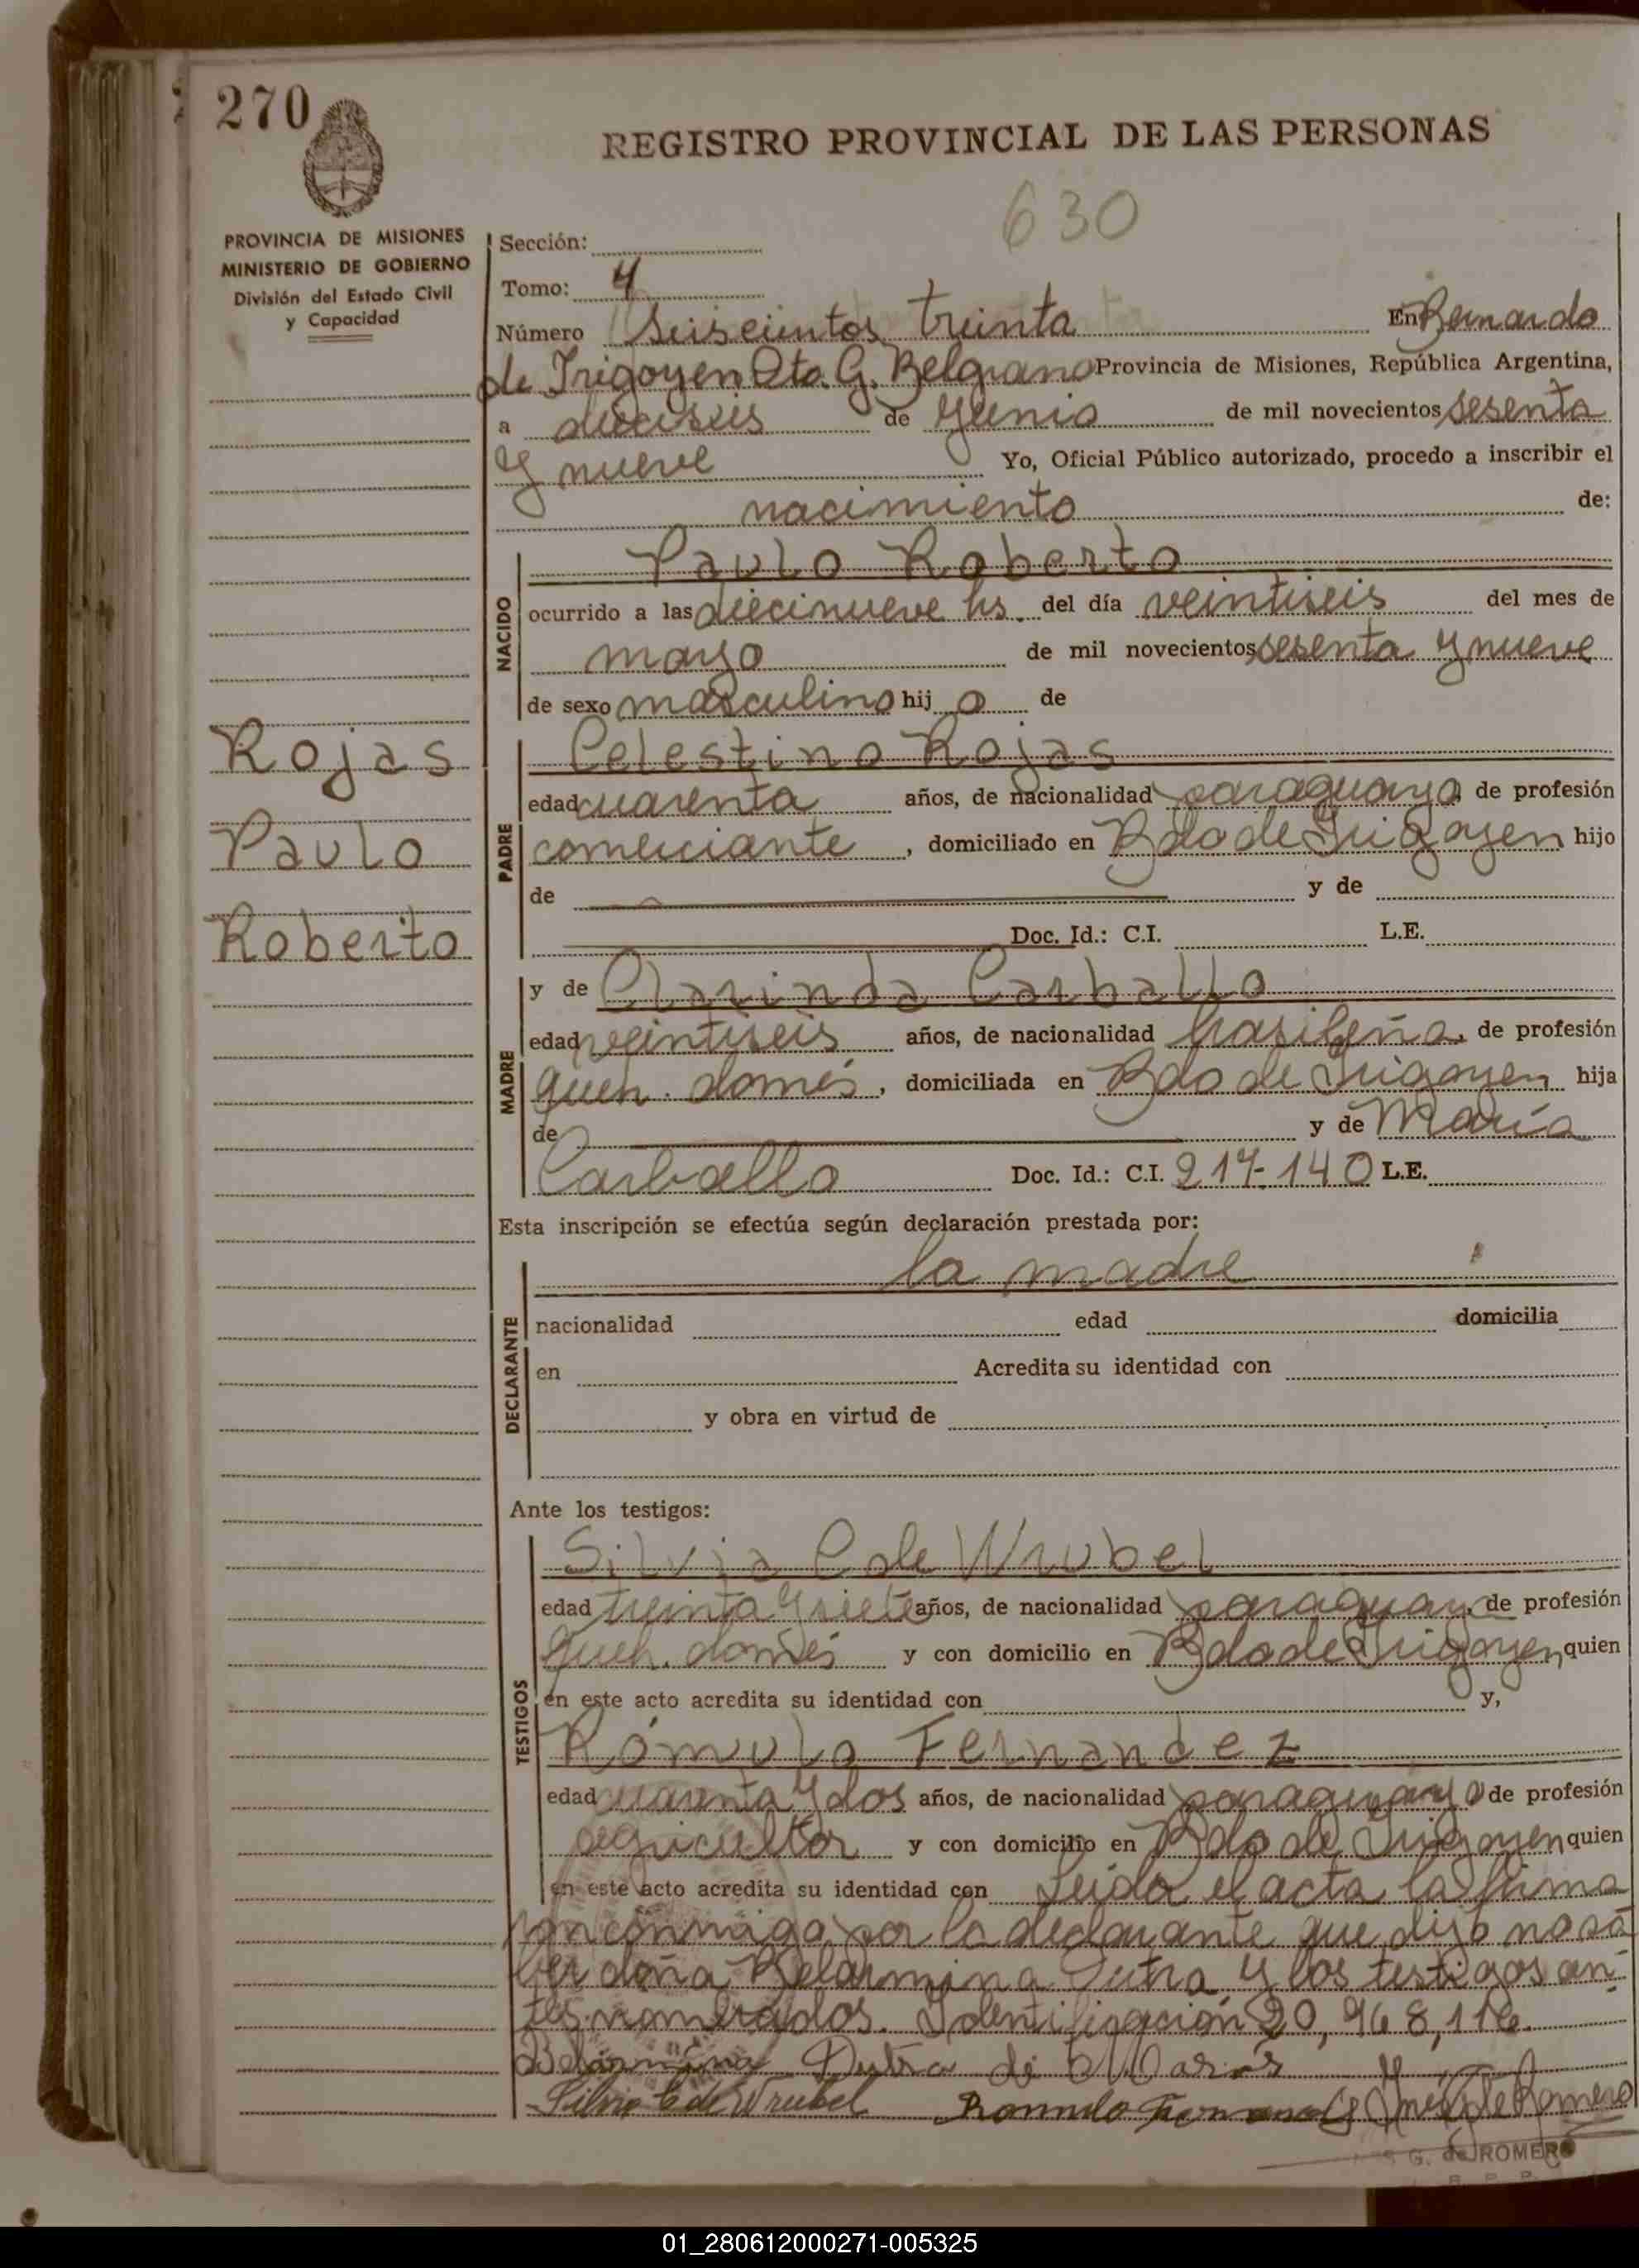 270
REGISTRO PROVINCIAL DE LAS PERSONAS
630
PROVINCIA DE MISIONES
MINISTERIO DE GOBIERNO
División del Estado Civil
y Capacidad
Sección:
Tomo: 4
Número Seiscientos treinta En Bernardo
de Irigoyen Dto. G. Belgrano Provincia de Misiones, República Argentina,
a dieciseis de Junio de mil novecientos sesenta
y nueve Yo, Oficial Público autorizado, procedo a inscribir el
nacimiento de:
NACIDO
Paulo Roberto
ocurrido a las diecinueve hs. del día veintiseis del mes de
mayo de mil novecientos sesenta y nueve
de sexo masculino hij o de
Rojas
Paulo
Roberto
PADRE
Celestino Rojas
edad cuarenta años, de nacionalidad paraguaya de profesión
comerciante, domiciliado en Bdo de Irigoyen hijo
de y de
Doc. Id.: C.I. L.E.
MADRE
y de Clarinda Carballo
edad veintiseis años, de nacionalidad brasileña, de profesión
queh. domés, domiciliada en Bdo de Irigoyen hija
de y de María
Carballo Doc. Id.: C.I. 217-140 L.E.
Esta inscripción se efectúa según declaración prestada por:
DECLARANTE
la madre
nacionalidad edad domicilia
en Acredita su identidad con
y obra en virtud de
Ante los testigos:
TESTIGOS
Silvia C de Wrubel
edad treinta y siete años, de nacionalidad paraguay, de profesión
queh. domés y con domicilio en Bdo de Irigoyen, quien
en este acto acredita su identidad con y,
Rómulo Fernandez
edad cuarenta y dos años, de nacionalidad paraguaya de profesión
agricultor y con domicilio en Bdo de Irigoyen quien
en este acto acredita su identidad con Leida el acta la firma
ron conmigo por la declarante que dijo no sa
ber doña Belarmina Dutra y los testigos an-
tes nombrados. Identificación 20,968,116.
Belarmina Dutra de
Silvia C de Wrubel Romulo de Romero
G. de ROMERO
01_280612000271-005325